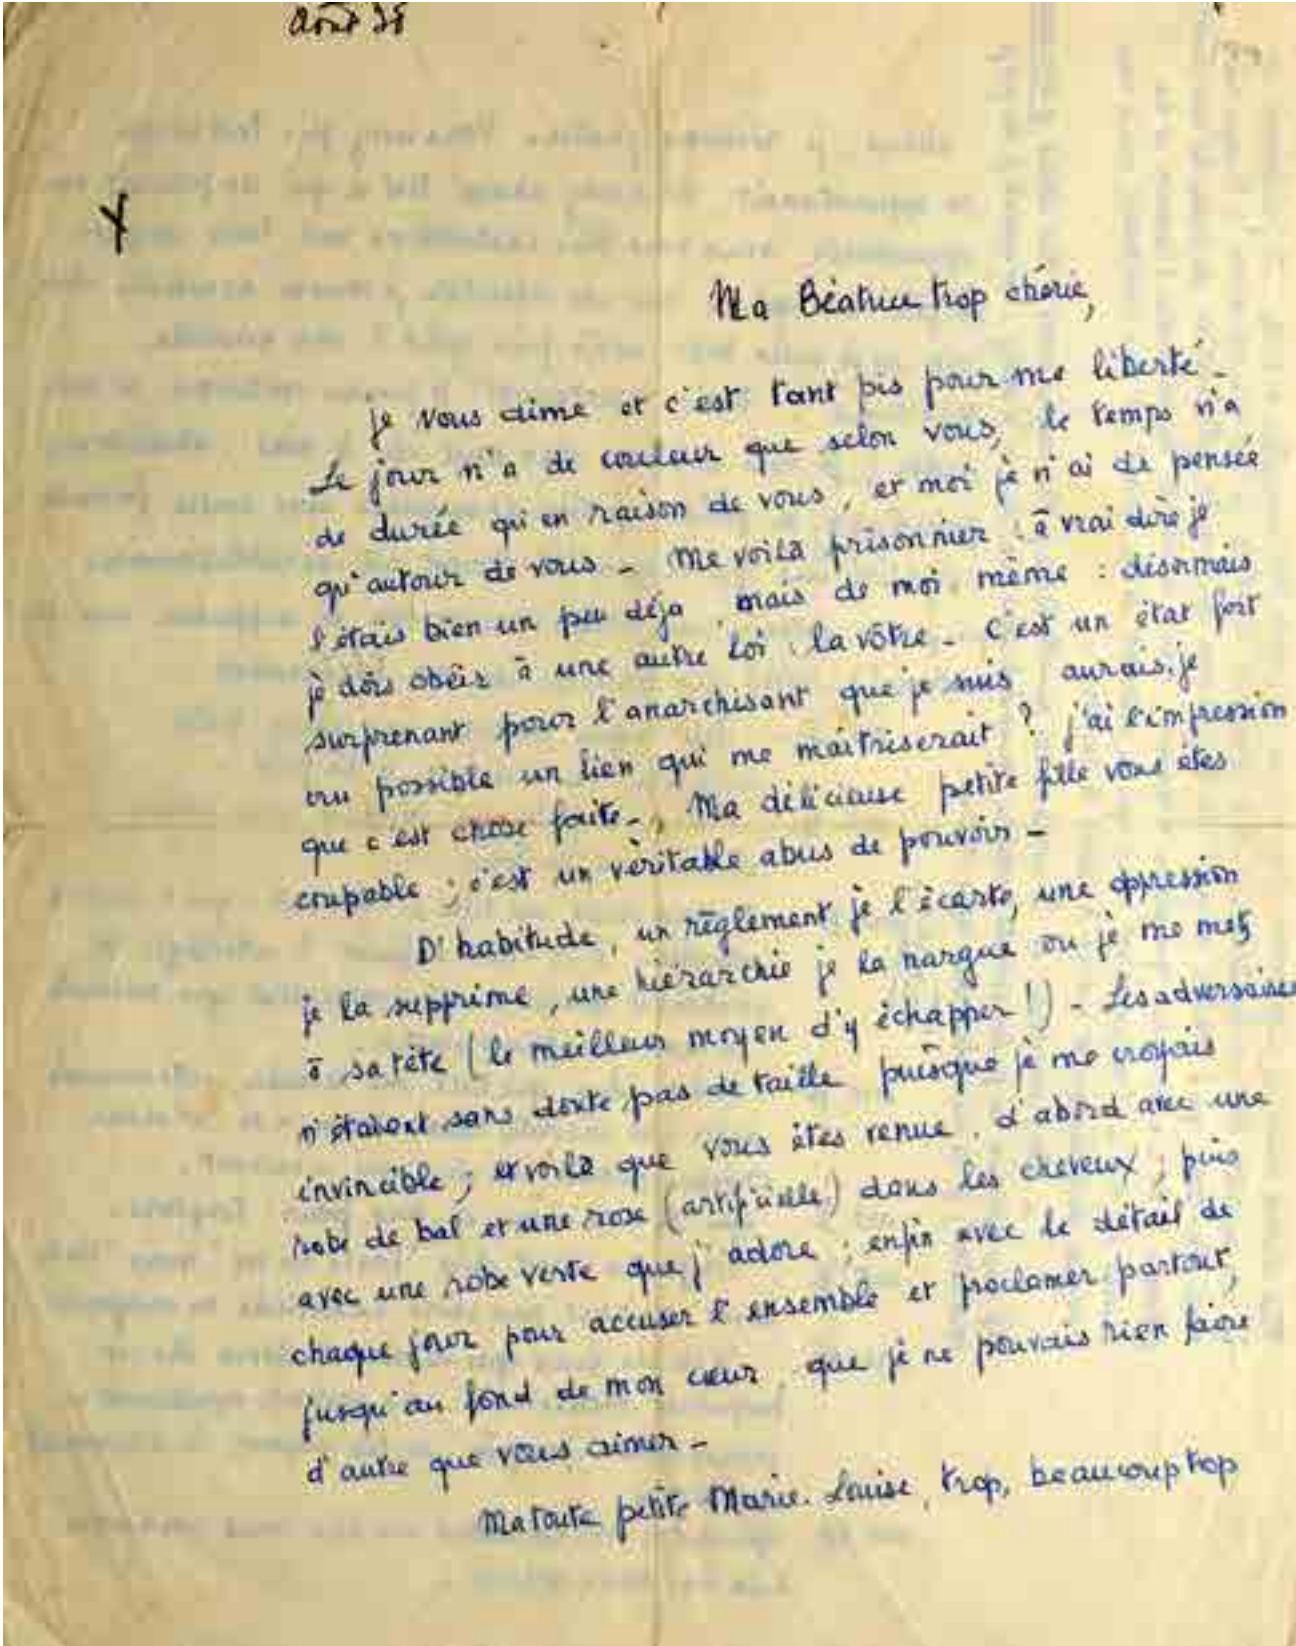 août 38
Ma Béatrice trop chérie,
je vous aime et c'est tant pis pour ma liberté -
Le jour n'a de couleur que selon vous, le temps n'a
de durée qu'en raison de vous, et moi je n'ai de pensée
qu'autour de vous - Me voilà prisonnier : à vrai dire je
l'étais bien un peu déjà mais de moi même : désormais
je dois obéir à une autre loi : la vôtre - C'est un état fort
surprenant pour l'anarchisant que je suis aurais-je
cru possible un lien qui me maîtriserait ? j'ai l'impression
que c'est chose faite -, Ma délicieuse petite fille vous êtes
coupable ; c'est un véritable abus de pouvoir -
D'habitude, un règlement je l'écarte, une oppression
je la supprime, une hiérarchie je la nargue ou je me mets
à sa tête (le meilleur moyen d'y échapper !) - Les adversaires
n'étaient sans doute pas de taille puisque je me croyais
invincible ; et voilà que vous êtes venue, d'abord avec une
robe de bal et une rose (artificielle) dans les cheveux ; puis
avec une robe verte que j'adore ; enfin avec le détail de
chaque jour pour accuser l'ensemble et proclamer partout,
jusqu'au fond de mon cœur, que je ne pouvais rien faire
d'autre que vous aimer -
Ma toute petite Marie-Louise, trop, beaucoup trop